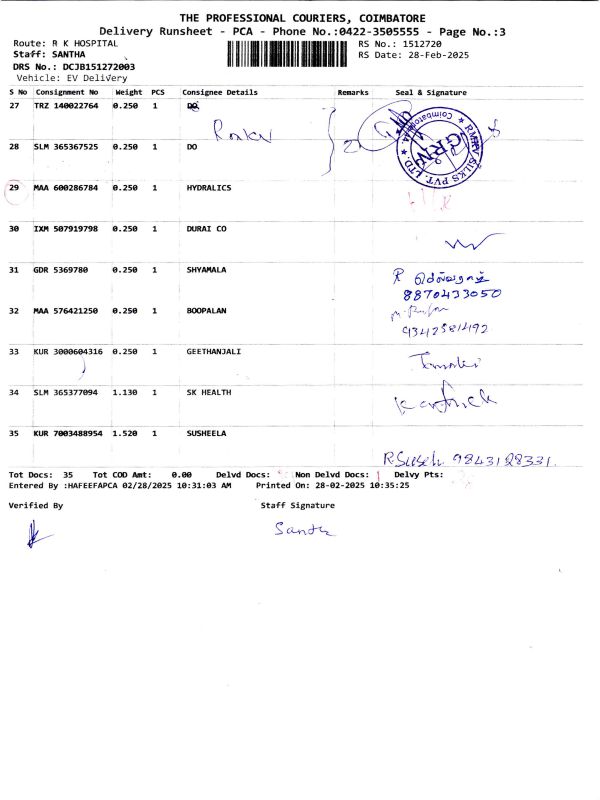 THE PROFESSIONAL COURIERS, COIMBATORE
Delivery Runsheet - PCA - Phone No.:0422-3505555 - Page No.:3
Route: R K HOSPITAL RS No.: 1512720
Staff: SANTHA RS Date: 28-Feb-2025
DRS No.: DCJB151272003
Vehicle: EV Delivery
S No Consignment No Weight PCS Consignee Details Remarks Seal & Signature
27 TRZ 140022764 0.250 1 DO
28 SLM 365367525 0.250 1 DO
29 MAA 600286784 0.250 1 HYDRALICS
30 IXM 507919798 0.250 1 DURAI CO
31 GDR 5369780 0.250 1 SHYAMALA
8870433050
32 MAA 576421250 0.250 1 BOOPALAN
9342581492
33 KUR 3000604316 0.250 1 GEETHANJALI
34 SLM 365377094 1.130 1 SK HEALTH
Karthick
35 KUR 7003488954 1.520 1 SUSHEELA
R.Suseh 9843128331
Tot Docs: 35 Tot COD Amt: 0.00 Delvd Docs: Non Delvd Docs: Delvy Pts:
Entered By :HAFEEFAPCA 02/28/2025 10:31:03 AM Printed On: 28-02-2025 10:35:25
Verified By Staff Signature
Santh